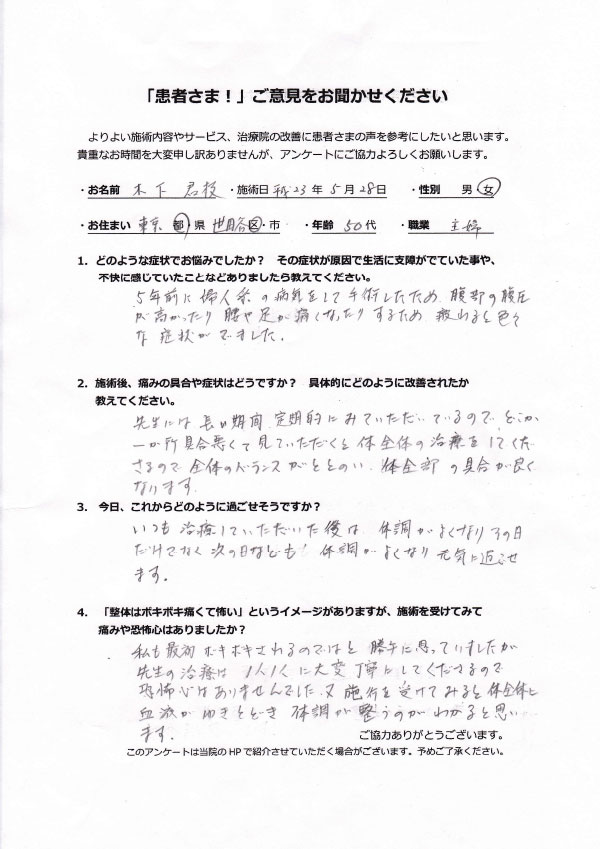 「患者さま！」ご意見をお聞かせください
よりよい施術内容やサービス、治療院の改善に患者さまの声を参考にしたいと思います。
貴重なお時間を大変申し訳ありませんが、アンケートにご協力よろしくお願いします。
・お名前 木下 君枝 ・施術日 平成23年5月28日 ・性別 男 女
・お住まい 東京 都・県 世田谷 区・市 ・年齢 50代 ・職業 主婦
1. どのような症状でお悩みでしたか？ その症状が原因で生活に支障がでていた事や、
不快に感じていたことなどありましたら教えてください。
5年前に婦人系の病気をして手術したため、腹部の腹圧
が高かったり腰や足が痛くなったりするため、疲れると色々
な症状がでました。
2. 施術後、痛みの具合や症状はどうですか？ 具体的にどのように改善されたか
教えてください。
先生には長い期間、定期的にみていただいているので、どこか
一か所具合悪くて見ていただくと体全体の治療をしてくだ
さるので全体のバランスがととのい、体全部の具合が良く
なります。
3. 今日、これからどのように過ごせそうですか？
いつも治療していただいた後は、体調がよくなりその日
だけでなく次の日なども、体調がよくなり元気に過ごせ
ます。
4. 「整体はボキボキ痛くて怖い」というイメージがありますが、施術を受けてみて
痛みや恐怖心はありましたか？
私も最初ボキボキされるのではと勝手に思っていましたが
先生の治療は1人1人に大変丁寧にしてくださるので
恐怖心はありませんでした。又施術を受けてみると体全体に
血液がゆきとどき体調が整うのがわかると思い
ます。
ご協力ありがとうございます。
このアンケートは当院のHPで紹介させていただく場合がございます。予めご了承ください。